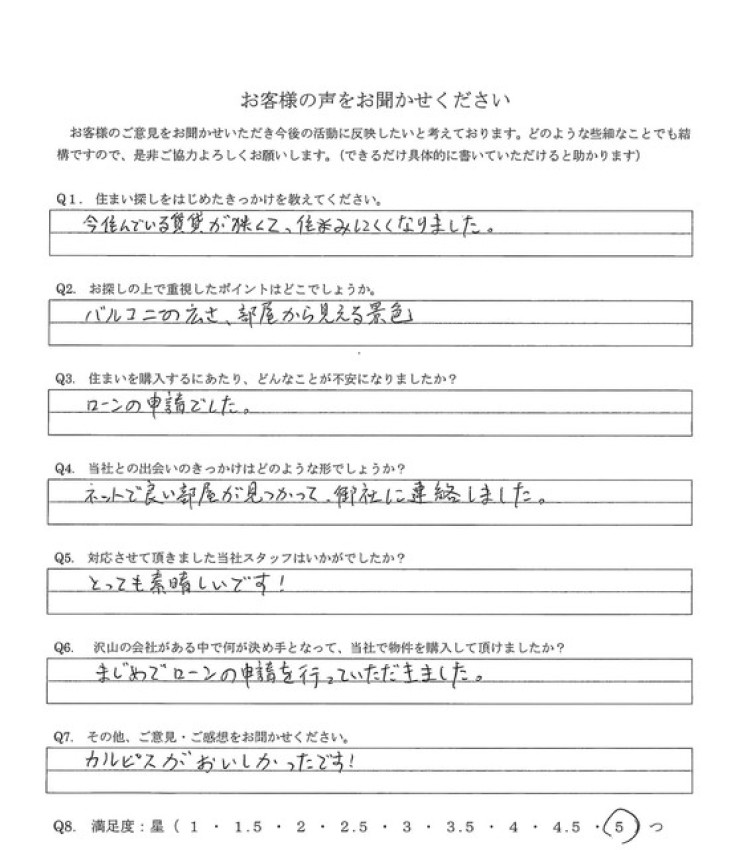 お客様の声をお聞かせください
お客様のご意見をお聞かせいただき今後の活動に反映したいと考えております。どのような些細なことでも結
構ですので、是非ご協力よろしくお願いします。（できるだけ具体的に書いていただけると助かります）
Q1. 住まい探しをはじめたきっかけを教えてください。
今住んでいる賃貸が狭くて、住みにくくなりました。
Q2. お探しの上で重視したポイントはどこでしょうか。
バルコニーの広さ、部屋から見える景色
Q3. 住まいを購入するにあたり、どんなことが不安になりましたか？
ローンの申請でした。
Q4. 当社との出会いのきっかけはどのような形でしょうか？
ネットで良い部屋が見つかって、御社に連絡しました。
Q5. 対応させて頂きました当社スタッフはいかがでしたか？
とっても素晴しいです！
Q6. 沢山の会社がある中で何が決め手となって、当社で物件を購入して頂けましたか？
まじめでローンの申請を行っていただきました。
Q7. その他、ご意見・ご感想をお聞かせください。
カルピスがおいしかったです！
Q8. 満足度：星（ 1 ・ 1.5 ・ 2 ・ 2.5 ・ 3 ・ 3.5 ・ 4 ・ 4.5 ・ 5 ）つ